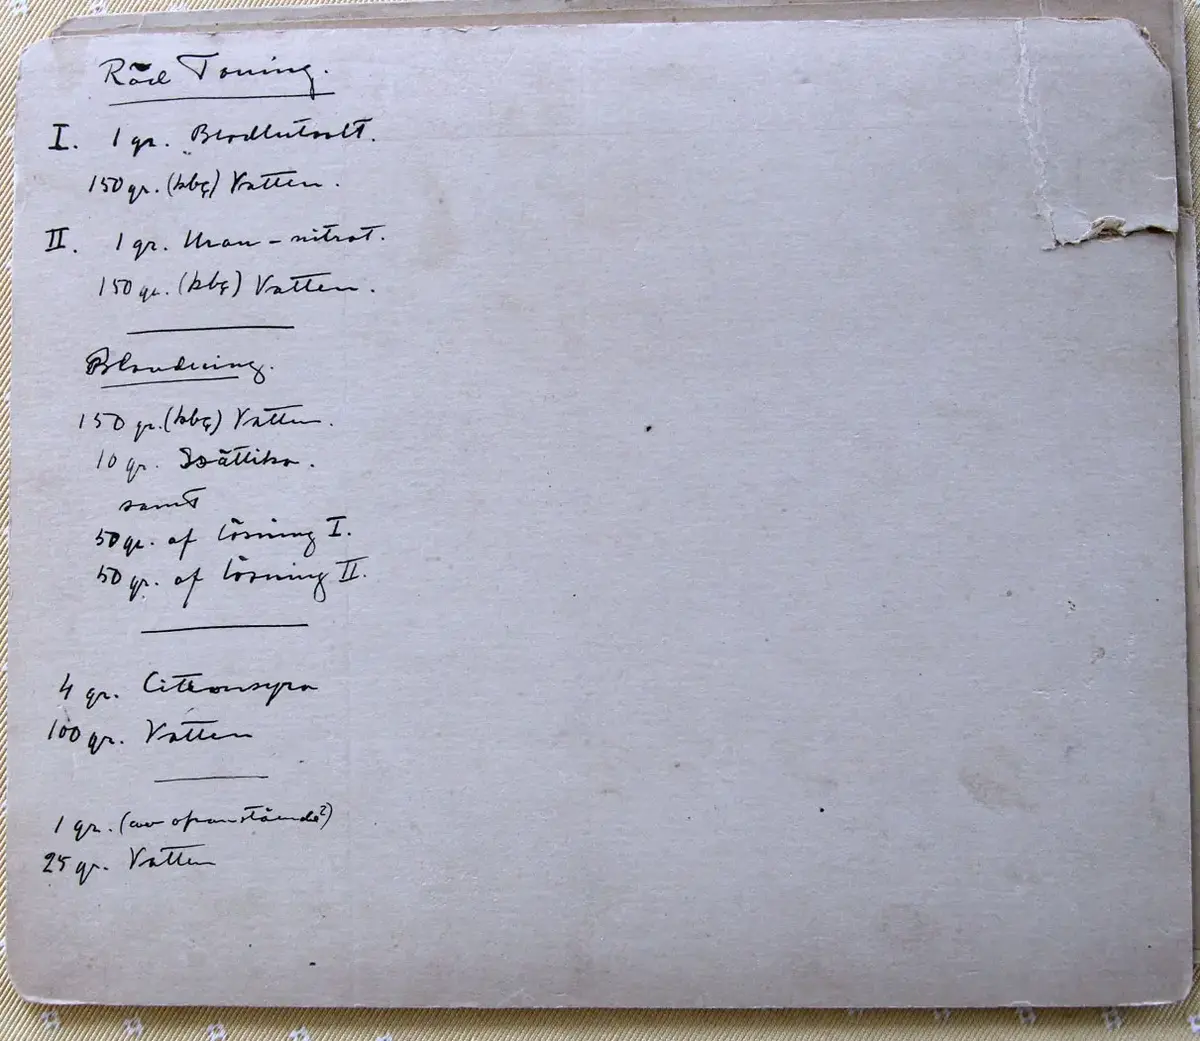 Röd Toning.
I. 1 gr. Blodlutsalt.
150 gr. (kbc) Vatten.
II. 1 gr. Uran-nitrat.
150 gr. (kbc) Vatten.
Blandning.
150 gr. (kbc) Vatten.
10 gr. Isättika.
samt
50 gr. af lösning I.
50 gr. af lösning II.
4 gr. Citronsyra
100 gr. Vatten
1 gr. (av ofanstående?)
25 gr. Vatten